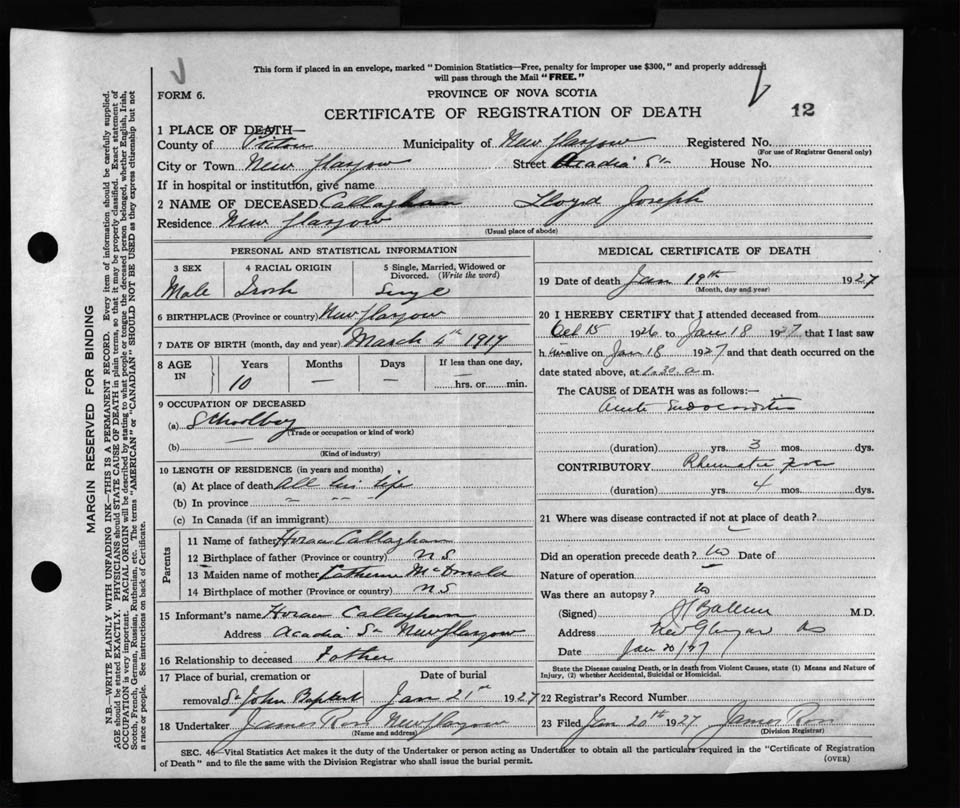 This form if placed in an envelope, marked "Dominion Statistics—Free, penalty for improper use $300," and properly addressed
will pass through the Mail "FREE."
FORM 6.
PROVINCE OF NOVA SCOTIA
CERTIFICATE OF REGISTRATION OF DEATH
12
1 PLACE OF DEATH—
County of Pictou Municipality of New Glasgow Registered No.
(For use of Registrar General only)
City or Town New Glasgow Street Acadia St House No.
If in hospital or institution, give name
2 NAME OF DECEASED Callaghan Lloyd Joseph
Residence New Glasgow
(Usual place of abode)
PERSONAL AND STATISTICAL INFORMATION
3 SEX 4 RACIAL ORIGIN 5 Single, Married, Widowed or
Divorced. (Write the word)
Male Irish Single
6 BIRTHPLACE (Province or country) New Glasgow
7 DATE OF BIRTH (month, day and year) March 4th 1917
8 AGE IN Years Months Days If less than one day,
10 — — hrs. or min.
9 OCCUPATION OF DECEASED
(a) Schoolboy
(Trade or occupation or kind of work)
(b) —
(Kind of industry)
10 LENGTH OF RESIDENCE (in years and months)
(a) At place of death All his life
(b) In province " " "
(c) In Canada (if an immigrant)
Parents
11 Name of father Horace Callaghan
12 Birthplace of father (Province or country) N S
13 Maiden name of mother Catherine McDonald
14 Birthplace of mother (Province or country) N S
15 Informant's name Horace Callaghan
Address Acadia St New Glasgow
16 Relationship to deceased Father
17 Place of burial, cremation or Date of burial
removal St John Baptist Jan 21st 1927
18 Undertaker James Ross New Glasgow
(Name and address)
MEDICAL CERTIFICATE OF DEATH
19 Date of death Jan 19th 1927
(Month, day and year)
20 I HEREBY CERTIFY that I attended deceased from
Oct 15 1926 to Jan 18 1927 that I last saw
h im alive on Jan 18 1927 and that death occurred on the
date stated above, at 1.30 a m.
The CAUSE of DEATH was as follows:—
Acute Endocarditis
(duration) yrs. 3 mos. dys.
CONTRIBUTORY Rheumatic Fever
(duration) yrs. 4 mos. dys.
21 Where was disease contracted if not at place of death?
Did an operation precede death? No Date of
Nature of operation
Was there an autopsy? No
(Signed) M.D.
Address New Glasgow NS
Date Jan 20/27
State the Disease causing Death, or in death from Violent Causes, state (1) Means and Nature of
Injury, (2) whether Accidental, Suicidal or Homicidal.
22 Registrar's Record Number
23 Filed Jan 20th 1927 James Ross
(Division Registrar)
SEC. 46—Vital Statistics Act makes it the duty of the Undertaker or person acting as Undertaker to obtain all the particulars required in the "Certificate of Registration
of Death" and to file the same with the Division Registrar who shall issue the burial permit.
(OVER)
MARGIN RESERVED FOR BINDING
N.B.—WRITE PLAINLY WITH UNFADING INK—THIS IS A PERMANENT RECORD. Every item of information should be carefully supplied.
AGE should be stated EXACTLY. PHYSICIANS should STATE CAUSE OF DEATH in plain terms, so that it may be properly classified. Exact statement of
OCCUPATION is very important. RACIAL ORIGIN will be described by stating to what people or tongue the deceased person belonged, whether English, Irish,
Scotch, French, German, Russian, Ruthenian, etc. The terms "AMERICAN" or "CANADIAN" SHOULD NOT BE USED as they express citizenship but not
a race or people. See instructions on back of Certificate.